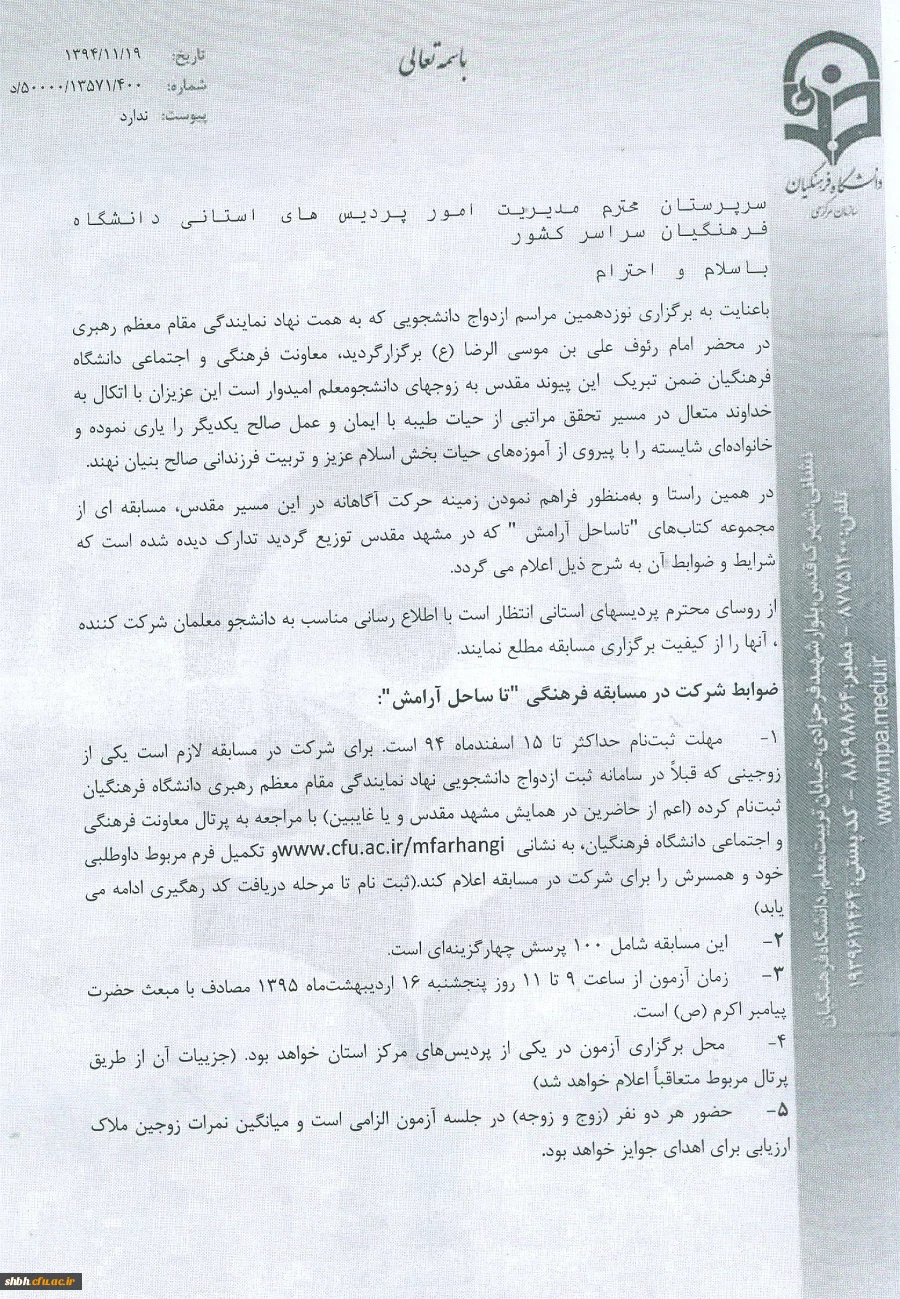 باسمه تعالی
تاریخ: ۱۳۹۴/۱۱/۱۹
شماره: ۵۰۰۰۰/۱۳۵۷۱/۴۰۰/د
پیوست: ندارد
دانشگاه فرهنگیان
سازمان مرکزی
سرپرستان محترم مدیریت امور پردیس های استانی دانشگاه
فرهنگیان سراسر کشور
باسلام و احترام
باعنایت به برگزاری نوزدهمین مراسم ازدواج دانشجویی که به همت نهاد نمایندگی مقام معظم رهبری
در محضر امام رئوف علی بن موسی الرضا (ع) برگزارگردید، معاونت فرهنگی و اجتماعی دانشگاه
فرهنگیان ضمن تبریک این پیوند مقدس به زوجهای دانشجومعلم امیدوار است این عزیزان با اتکال به
خداوند متعال در مسیر تحقق مراتبی از حیات طیبه با ایمان و عمل صالح یکدیگر را یاری نموده و
خانواده‌ای شایسته را با پیروی از آموزه‌های حیات بخش اسلام عزیز و تربیت فرزندانی صالح بنیان نهند.
در همین راستا و به‌منظور فراهم نمودن زمینه حرکت آگاهانه در این مسیر مقدس، مسابقه ای از
مجموعه کتاب‌های "تاساحل آرامش " که در مشهد مقدس توزیع گردید تدارک دیده شده است که
شرایط و ضوابط آن به شرح ذیل اعلام می گردد.
از روسای محترم پردیسهای استانی انتظار است با اطلاع رسانی مناسب به دانشجو معلمان شرکت کننده
، آنها را از کیفیت برگزاری مسابقه مطلع نمایند.
ضوابط شرکت در مسابقه فرهنگی "تا ساحل آرامش":
۱- مهلت ثبت‌نام حداکثر تا ۱۵ اسفندماه ۹۴ است. برای شرکت در مسابقه لازم است یکی از
زوجینی که قبلاً در سامانه ثبت ازدواج دانشجویی نهاد نمایندگی مقام معظم رهبری دانشگاه فرهنگیان
ثبت‌نام کرده (اعم از حاضرین در همایش مشهد مقدس و یا غایبین) با مراجعه به پرتال معاونت فرهنگی
و اجتماعی دانشگاه فرهنگیان، به نشانی www.cfu.ac.ir/mfarhangi و تکمیل فرم مربوط داوطلبی
خود و همسرش را برای شرکت در مسابقه اعلام کند.(ثبت نام تا مرحله دریافت کد رهگیری ادامه می
یابد)
۲- این مسابقه شامل ۱۰۰ پرسش چهارگزینه‌ای است.
۳- زمان آزمون از ساعت ۹ تا ۱۱ روز پنجشنبه ۱۶ اردیبهشت‌ماه ۱۳۹۵ مصادف با مبعث حضرت
پیامبر اکرم (ص) است.
۴- محل برگزاری آزمون در یکی از پردیس‌های مرکز استان خواهد بود. (جزییات آن از طریق
پرتال مربوط متعاقباً اعلام خواهد شد)
۵- حضور هر دو نفر (زوج و زوجه) در جلسه آزمون الزامی است و میانگین نمرات زوجین ملاک
ارزیابی برای اهدای جوایز خواهد بود.
نشانی: شهرک قدس، بلوار شهید فرحزادی، خیابان تربیت معلم، دانشگاه فرهنگیان
تلفن: ۸۷۷۵۱۲۰۰ - نمابر: ۸۸۶۹۸۸۶۴ - کدپستی: ۱۹۳۹۶۱۴۴۶۴
www.mpa.medu.ir
shbh.cfu.ac.ir